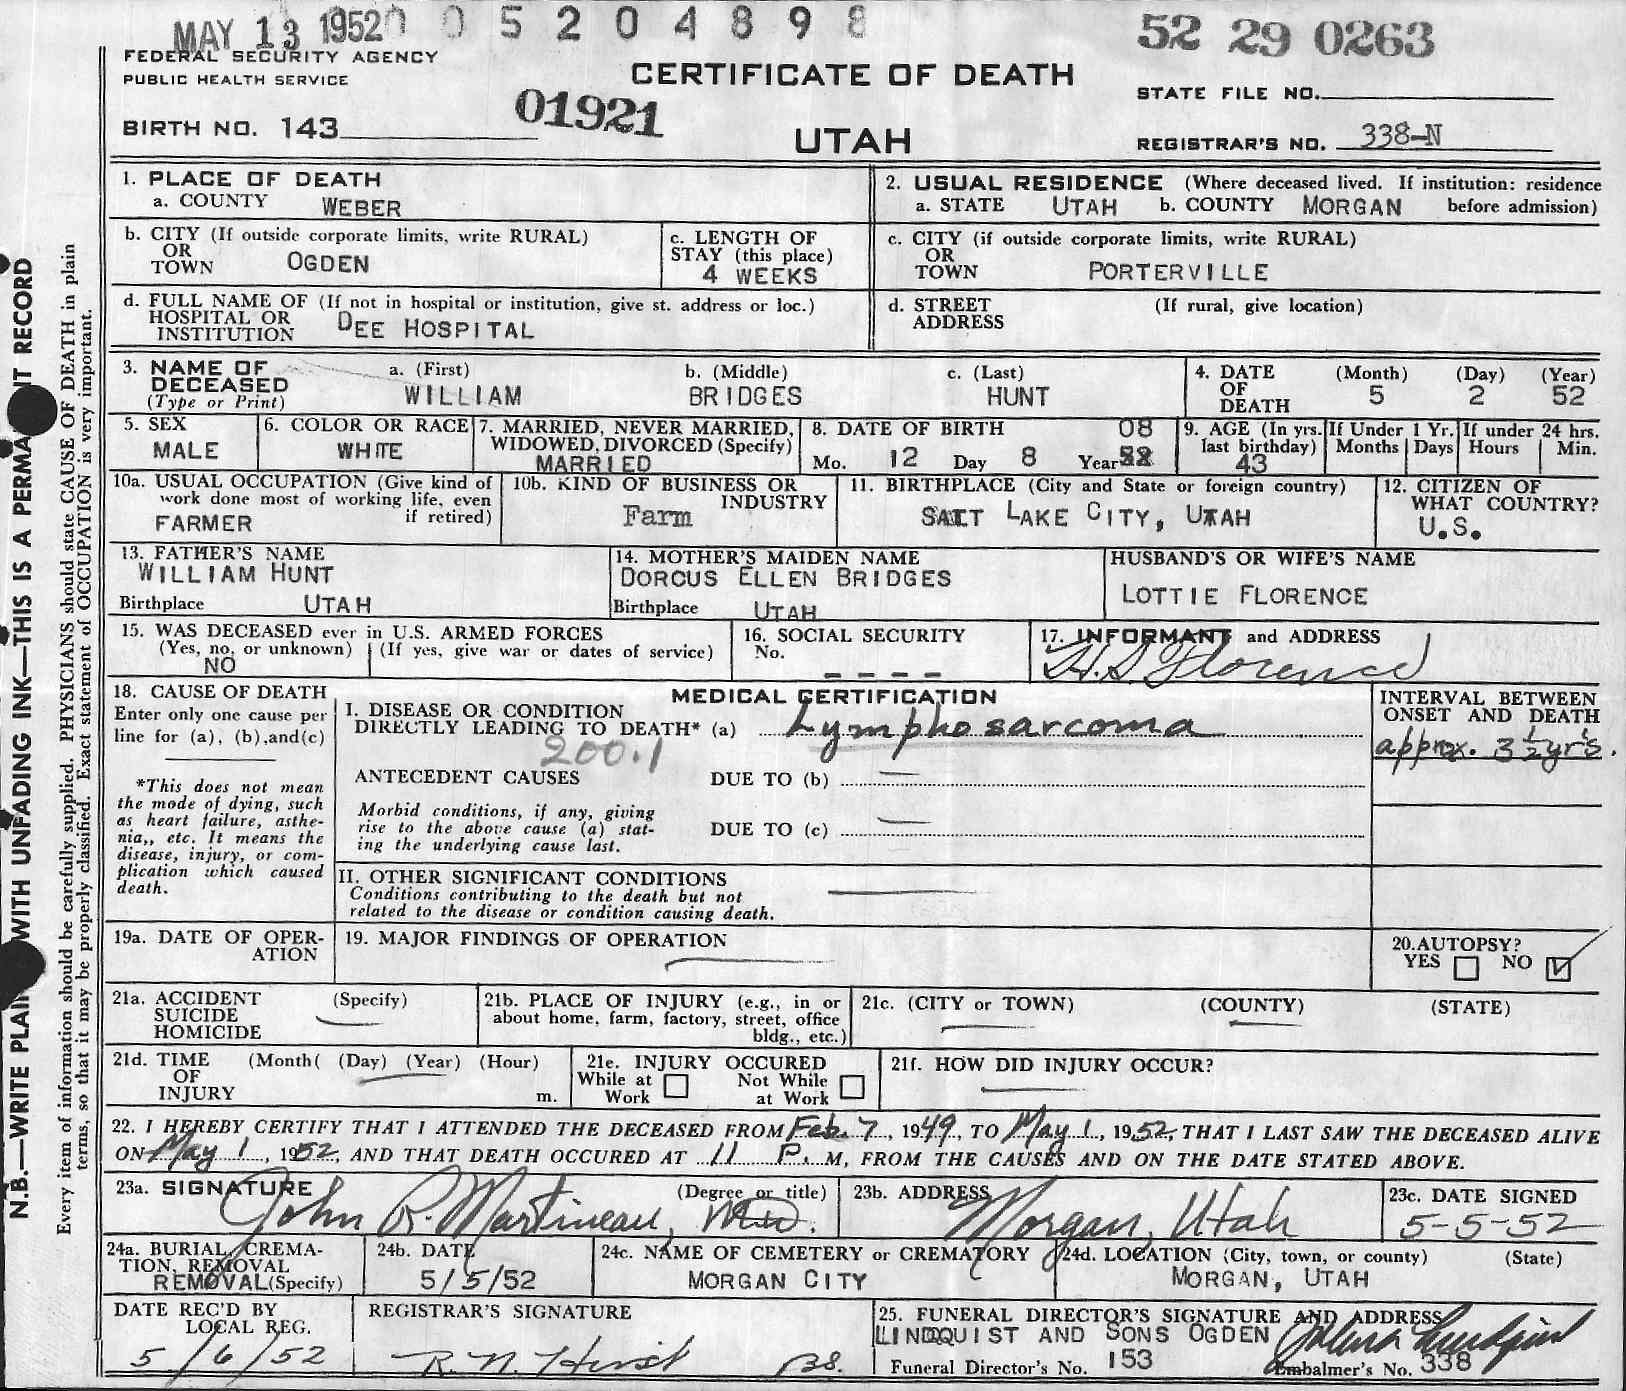 MAY 13 1952 0 0 5 2 0 4 8 9 8
52 29 0263
FEDERAL SECURITY AGENCY
PUBLIC HEALTH SERVICE
CERTIFICATE OF DEATH
STATE FILE NO.
01921
BIRTH NO. 143
UTAH
REGISTRAR'S NO. 338-N
1. PLACE OF DEATH
a. COUNTY WEBER
2. USUAL RESIDENCE (Where deceased lived. If institution: residence
a. STATE UTAH b. COUNTY MORGAN before admission)
b. CITY (If outside corporate limits, write RURAL)
OR
TOWN OGDEN
c. LENGTH OF
STAY (this place)
4 WEEKS
c. CITY (if outside corporate limits, write RURAL)
OR
TOWN PORTERVILLE
d. FULL NAME OF (If not in hospital or institution, give st. address or loc.)
HOSPITAL OR
INSTITUTION DEE HOSPITAL
d. STREET (If rural, give location)
ADDRESS
3. NAME OF
DECEASED
(Type or Print)
a. (First) b. (Middle) c. (Last)
WILLIAM BRIDGES HUNT
4. DATE (Month) (Day) (Year)
OF
DEATH 5 2 52
5. SEX
MALE
6. COLOR OR RACE
WHITE
7. MARRIED, NEVER MARRIED,
WIDOWED, DIVORCED (Specify)
MARRIED
8. DATE OF BIRTH 08
Mo. 12 Day 8 Year
9. AGE (In yrs.
last birthday)
43
If Under 1 Yr.
Months Days
If under 24 hrs.
Hours Min.
10a. USUAL OCCUPATION (Give kind of
work done most of working life, even
if retired)
FARMER
10b. KIND OF BUSINESS OR
INDUSTRY
Farm
11. BIRTHPLACE (City and State or foreign country)
SALT LAKE CITY, UTAH
12. CITIZEN OF
WHAT COUNTRY?
U.S.
13. FATHER'S NAME
WILLIAM HUNT
Birthplace UTAH
14. MOTHER'S MAIDEN NAME
DORCUS ELLEN BRIDGES
Birthplace UTAH
HUSBAND'S OR WIFE'S NAME
LOTTIE FLORENCE
15. WAS DECEASED ever in U.S. ARMED FORCES
(Yes, no, or unknown) (If yes, give war or dates of service)
NO
16. SOCIAL SECURITY
No.
- - - -
17. INFORMANT and ADDRESS
H.S. Florence
18. CAUSE OF DEATH
Enter only one cause per
line for (a), (b),and(c)
*This does not mean
the mode of dying, such
as heart failure, asthe-
nia,, etc. It means the
disease, injury, or com-
plication which caused
death.
MEDICAL CERTIFICATION
I. DISEASE OR CONDITION
DIRECTLY LEADING TO DEATH* (a) Lymphosarcoma
200.1
INTERVAL BETWEEN
ONSET AND DEATH
approx. 3 1/2 yrs.
ANTECEDENT CAUSES DUE TO (b)
Morbid conditions, if any, giving
rise to the above cause (a) stat-
ing the underlying cause last.
DUE TO (c)
II. OTHER SIGNIFICANT CONDITIONS
Conditions contributing to the death but not
related to the disease or condition causing death.
19a. DATE OF OPER-
ATION
19. MAJOR FINDINGS OF OPERATION
20.AUTOPSY?
YES NO
21a. ACCIDENT (Specify)
SUICIDE
HOMICIDE
21b. PLACE OF INJURY (e.g., in or
about home, farm, factory, street, office
bldg., etc.)
21c. (CITY or TOWN) (COUNTY) (STATE)
21d. TIME (Month( (Day) (Year) (Hour)
OF
INJURY m.
21e. INJURY OCCURED
While at Not While
Work at Work
21f. HOW DID INJURY OCCUR?
22. I HEREBY CERTIFY THAT I ATTENDED THE DECEASED FROM Feb. 7, 1949, TO May 1, 1952, THAT I LAST SAW THE DECEASED ALIVE
ON May 1, 1952, AND THAT DEATH OCCURED AT 11 P. M, FROM THE CAUSES AND ON THE DATE STATED ABOVE.
23a. SIGNATURE (Degree or title)
John R. Martineau, M.D.
23b. ADDRESS
Morgan, Utah
23c. DATE SIGNED
5-5-52
24a. BURIAL, CREMA-
TION, REMOVAL
REMOVAL(Specify)
24b. DATE
5/5/52
24c. NAME OF CEMETERY or CREMATORY
MORGAN CITY
24d. LOCATION (City, town, or county) (State)
MORGAN, UTAH
DATE REC'D BY
LOCAL REG.
5/6/52
REGISTRAR'S SIGNATURE
R. N. Hirst
25. FUNERAL DIRECTOR'S SIGNATURE AND ADDRESS
LINDQUIST AND SONS OGDEN
Funeral Director's No. 153 Embalmer's No. 338
N.B.—WRITE PLAIN WITH UNFADING INK—THIS IS A PERMA T RECORD
Every item of information should be carefully supplied. PHYSICIANS should state CAUSE OF DEATH in plain
terms, so that it may be properly classified. Exact statement of OCCUPATION is very important.